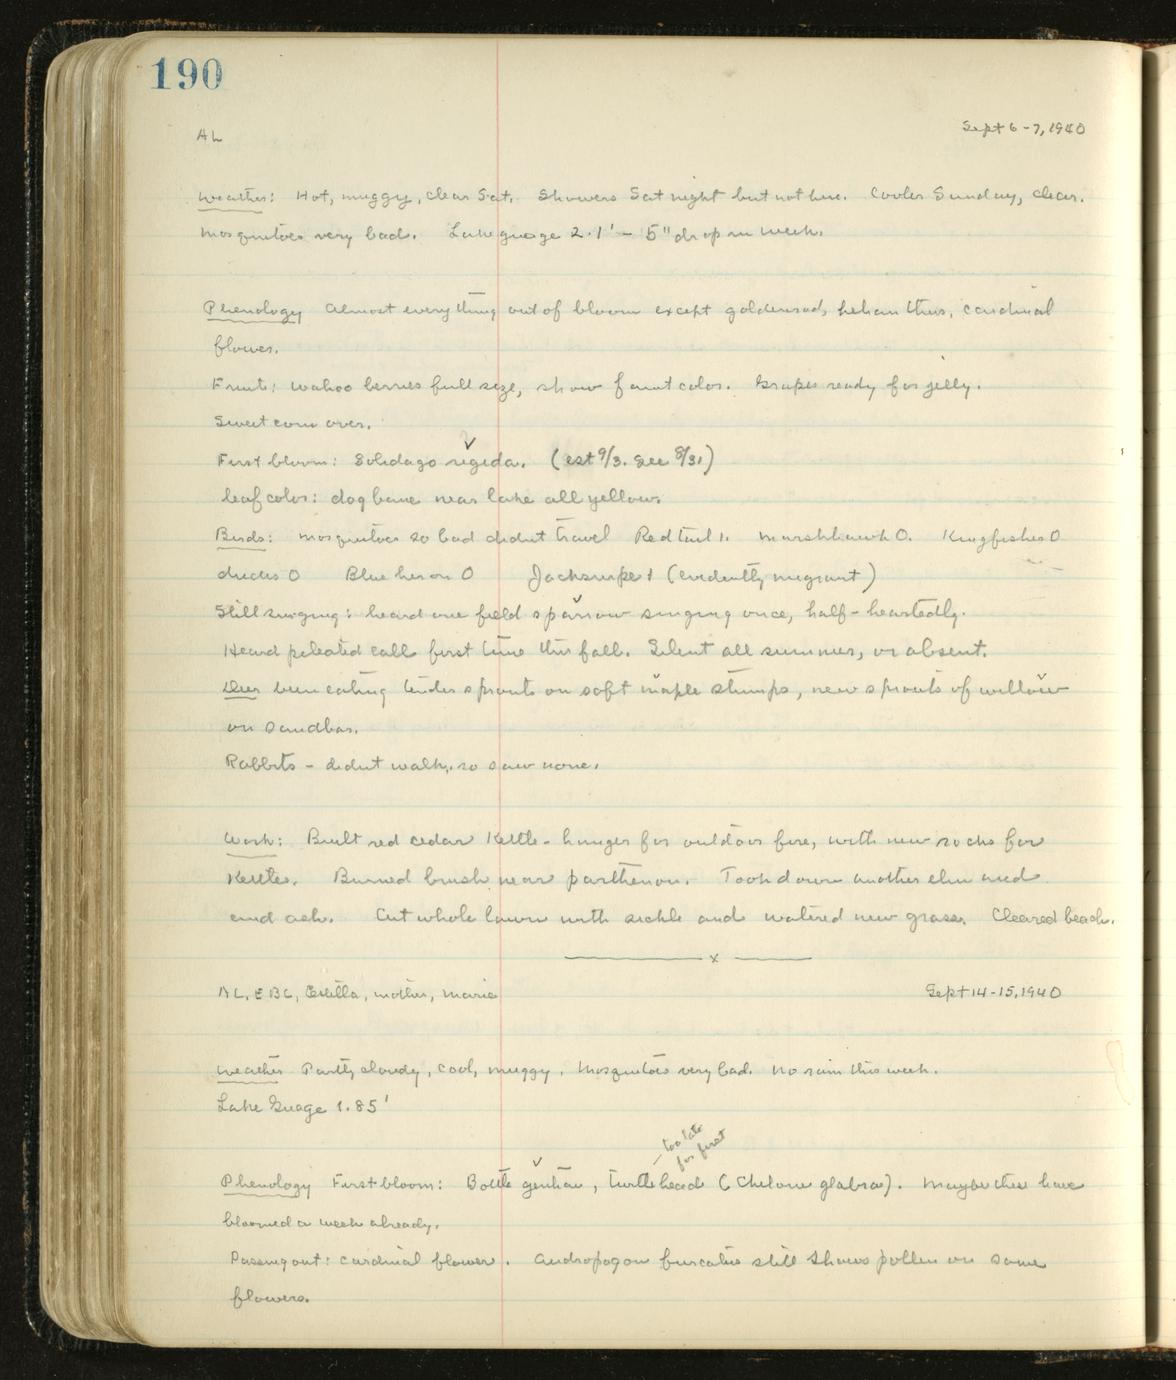 190
AL Sept 6-7, 1940
Weather: Hot, muggy, clear Sat. Showers Sat night but not here. Cooler Sunday, clear.
Mosquitoes very bad. Lake guage 2.1' - 5" drop in week.
Phenology Almost everything out of bloom except goldenrod, helianthus, cardinal
flower.
Fruits: Wahoo berries full size, show faint color. Grapes ready for jelly.
Sweet corn over.
First bloom: Solidago rigida. (est 9/3. See 8/31)
Leaf color: dogbane near lake all yellow.
Birds: Mosquitoes so bad didnt travel Redtail 1. Marshhawk 0. Kingfisher 0
ducks 0 Blue heron 0 Jacksnipe 1 (evidently migrant)
Still singing: heard one field sparrow singing once, half-heartedly.
Heard pileated call first time this fall. Silent all summer, or absent.
Deer been eating tender sprouts on soft maple stumps, new sprouts of willow
on sandbar.
Rabbits - didnt walk, so saw none.
Work: Built red cedar kettle-hanger for outdoor fire, with new rocks for
kettles. Burned brush near parthenon. Took down another elm and
and ash. Cut whole lawn with sickle and watered new grass. Cleared beach.
x
AL, EBL, Estella, mother, Marie Sept 14-15, 1940
Weather Partly cloudy, cool, muggy. Mosquitoes very bad. No rain this week.
Lake Guage 1.85'
- too late
for first
Phenology First bloom: Bottle gentian, turtlehead (Chelone glabra). Maybe these have
bloomed a week already.
Passing out: cardinal flower. Andropogon furcatus still shows pollen on some
flowers.